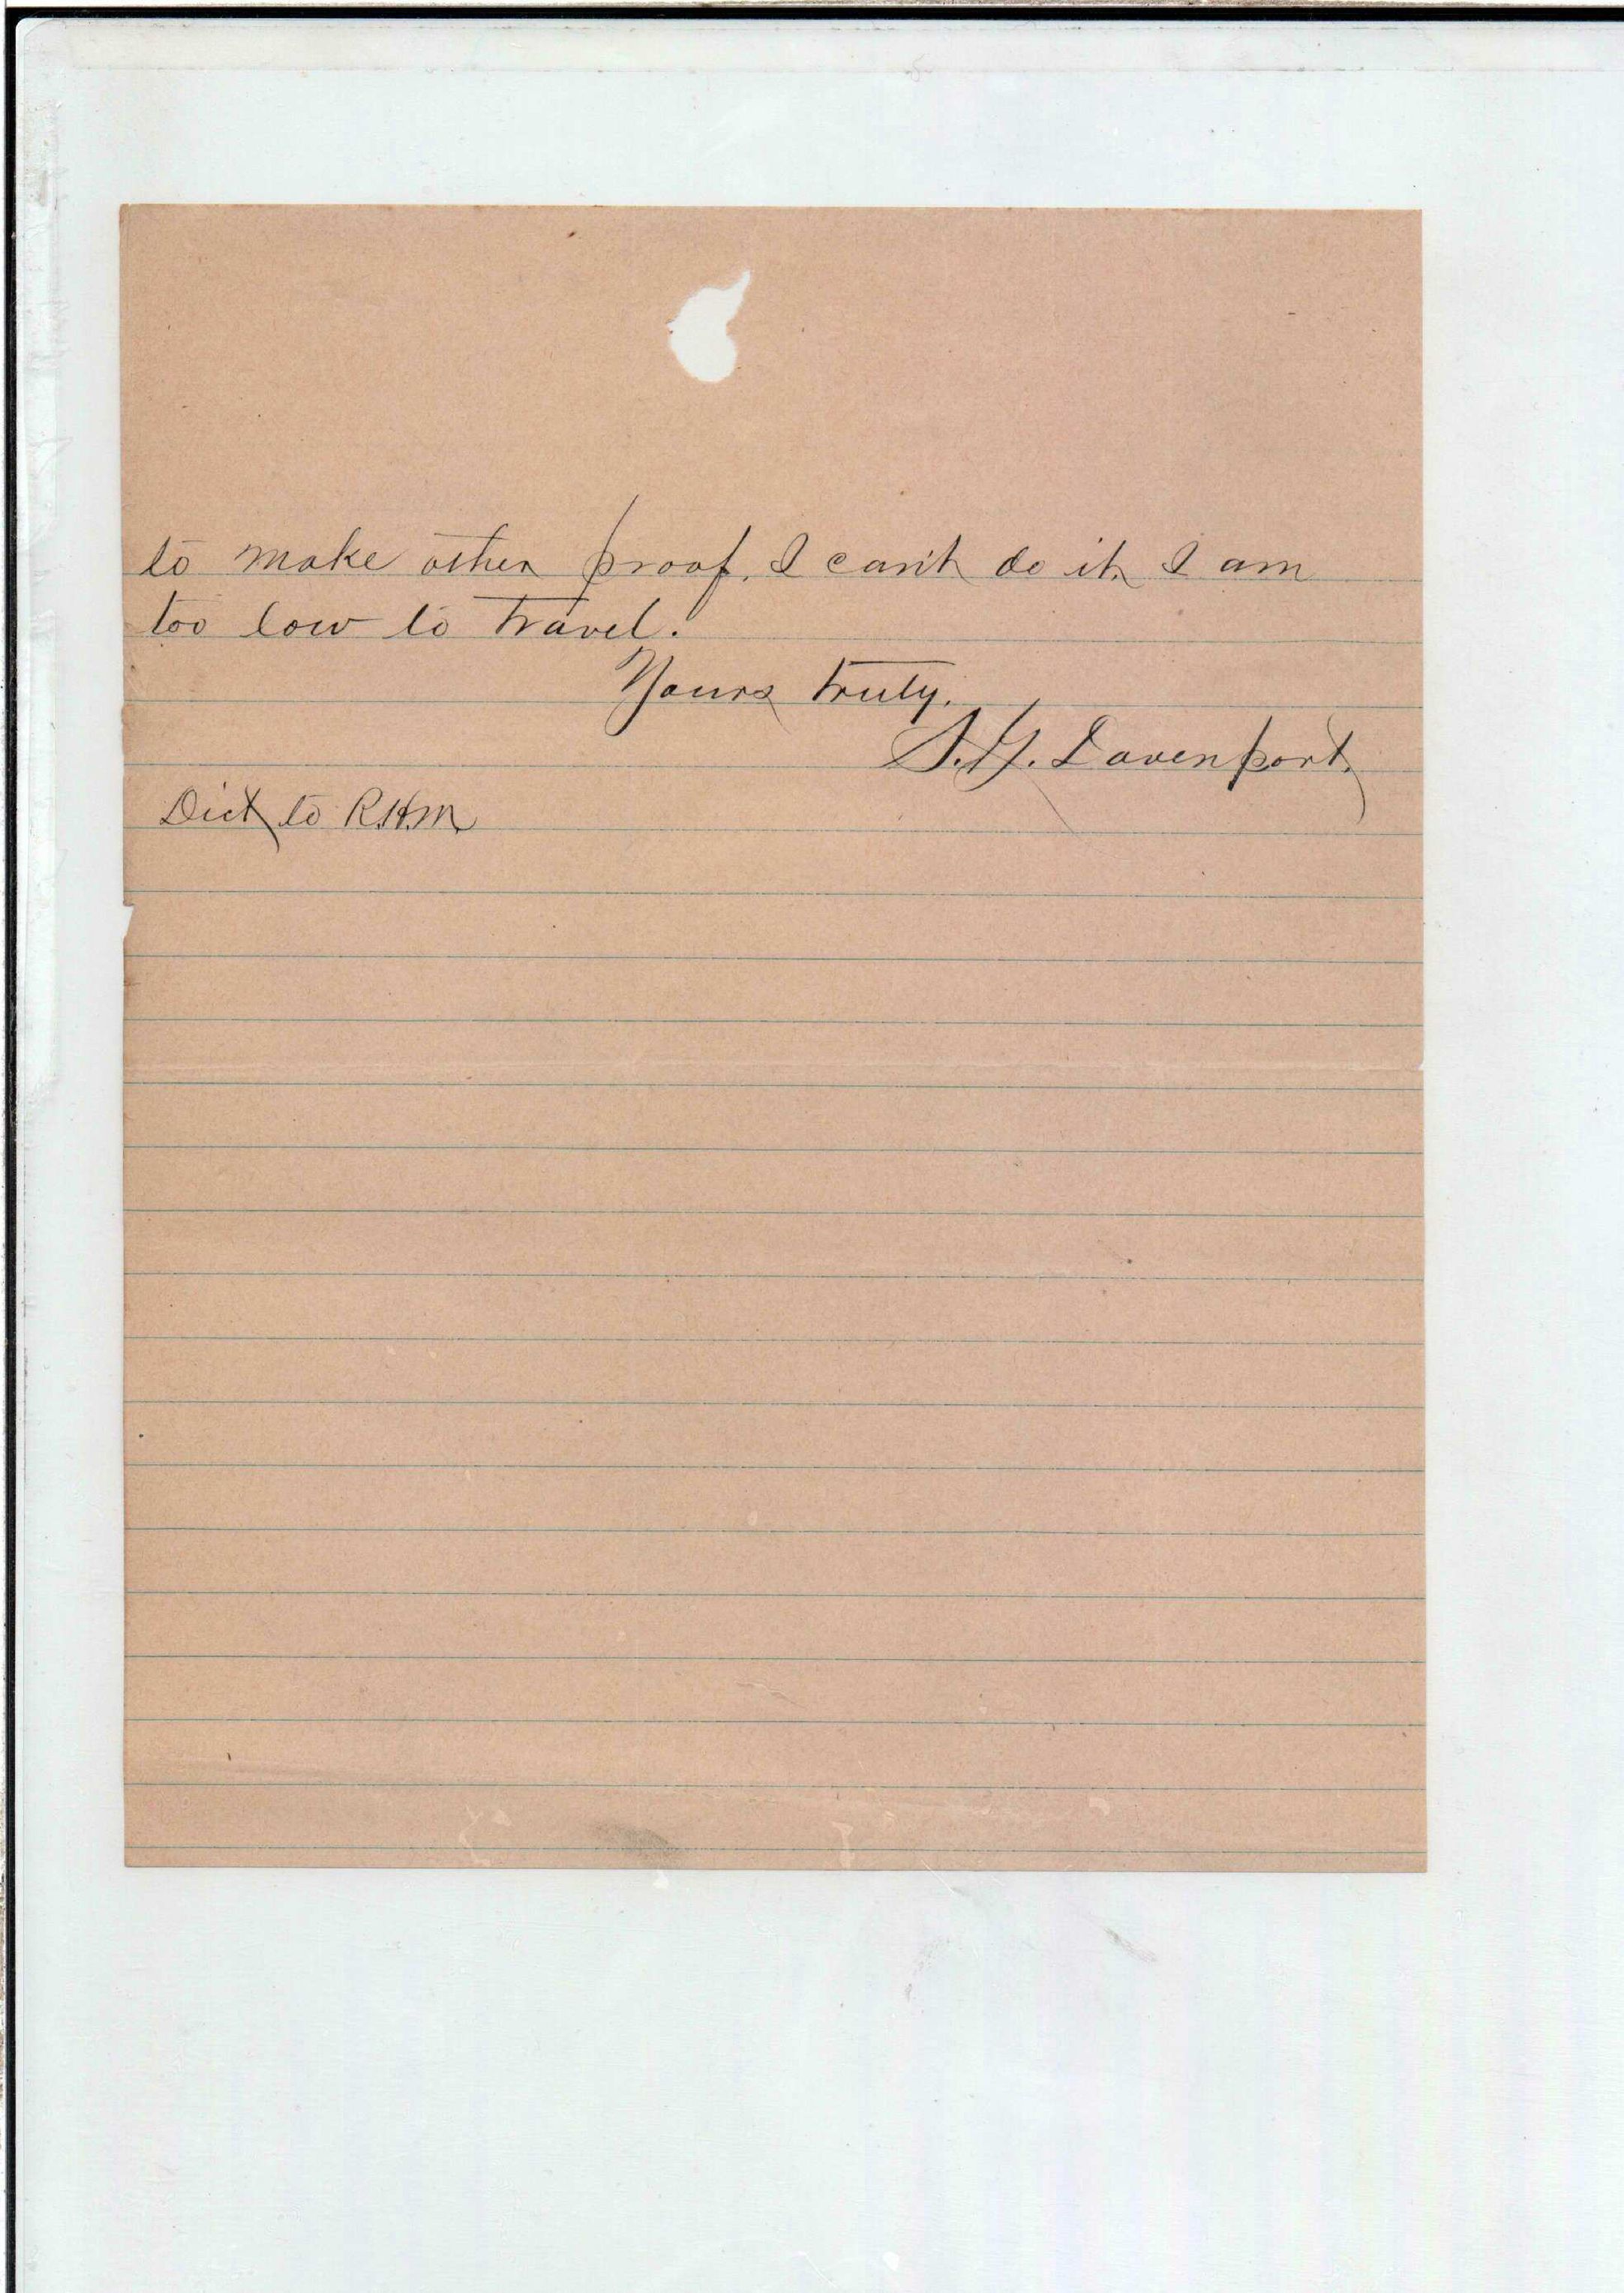 to make other proof. I can't do it. I am
too low to travel.
Yours truly.
S.G. Davenport.
Dict to R.H.M.